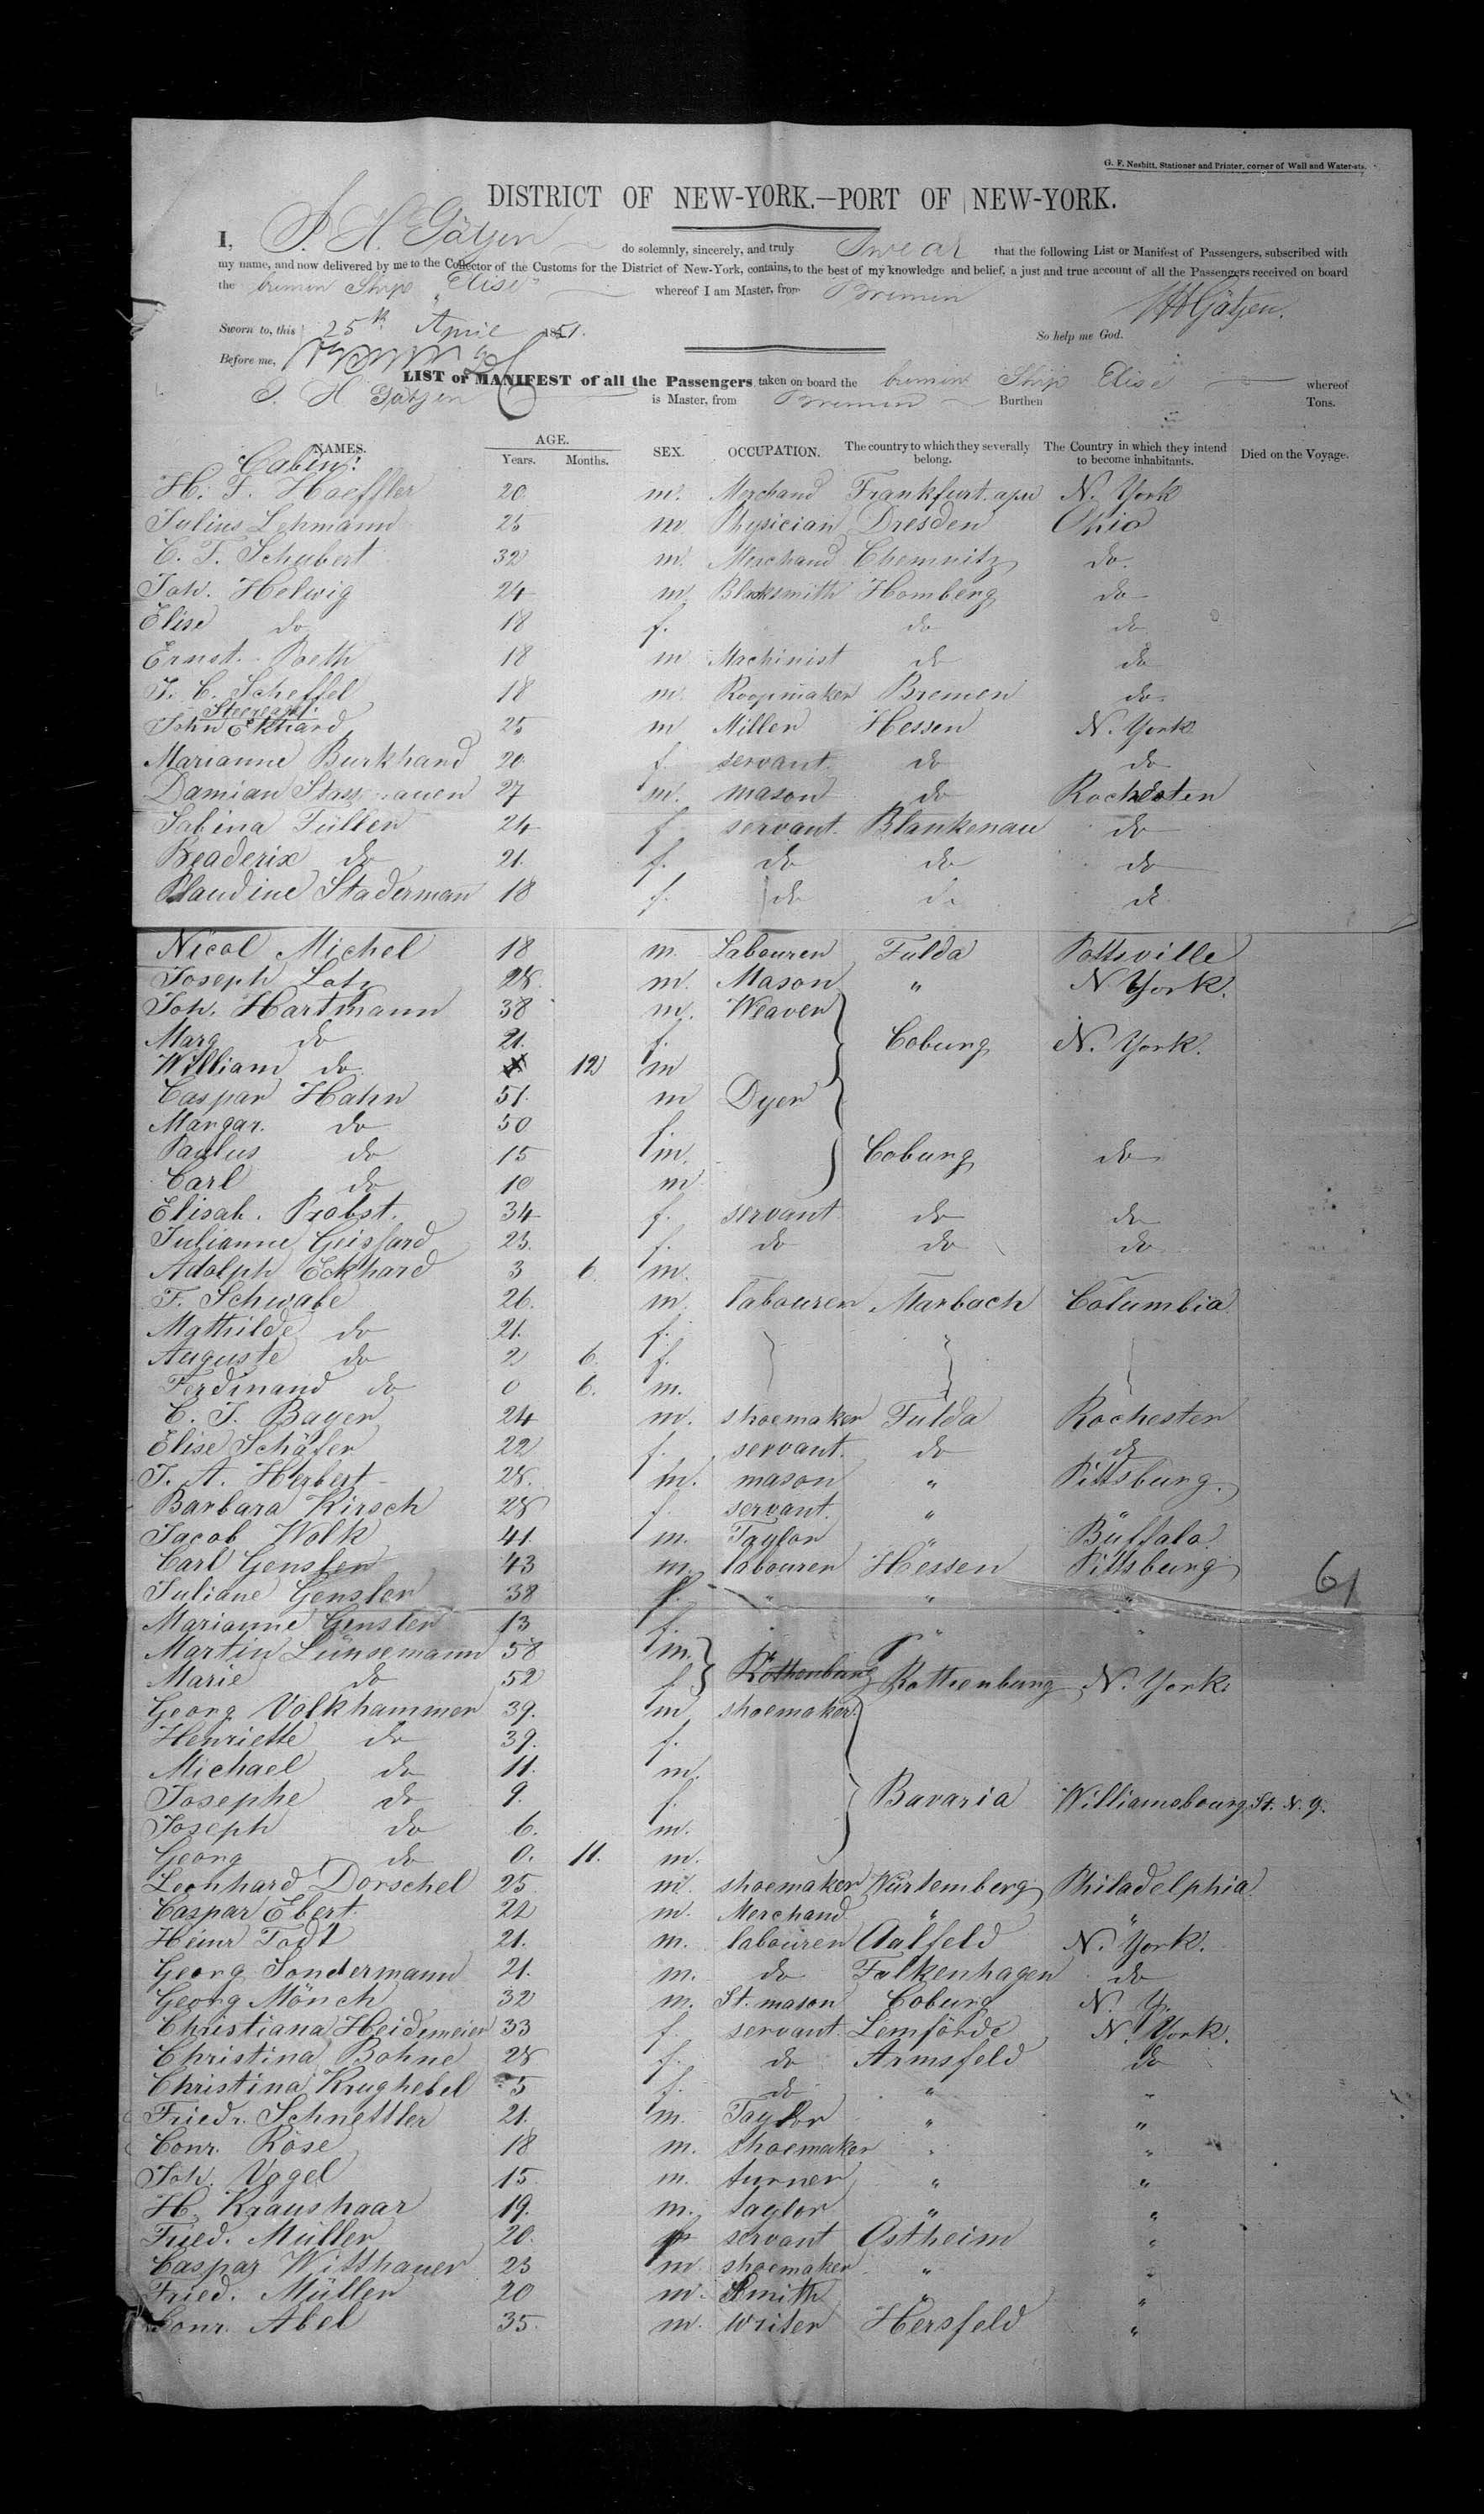 G. F. Nesbitt, Stationer and Printer, corner of Wall and Water-sts.
DISTRICT OF NEW-YORK.—PORT OF NEW-YORK.
I, H. Gätjen do solemnly, sincerely, and truly Swear that the following List or Manifest of Passengers, subscribed with
my name, and now delivered by me to the Collector of the Customs for the District of New-York, contains, to the best of my knowledge and belief, a just and true account of all the Passengers received on board
the bremen Ship Elise whereof I am Master, from Bremen
H Gätjen.
Sworn to, this 25th April 1851. So help me God.
Before me,
LIST or MANIFEST of all the Passengers taken on board the bremen Ship Elise whereof
H Gätjen is Master, from Bremen Burthen Tons.
NAMES. AGE. Years. Months. SEX. OCCUPATION. The country to which they severally belong. The Country in which they intend to become inhabitants. Died on the Voyage.
Cabin:
H. F. Haeffler 20 m. Merchand Frankfurt N. York
Julius Lehmann 25 m Physician Dresden Ohio
C. F. Schubert 32 m. Merchand Chemnitz do.
Joh. Helwig 24 m. Blacksmith Homberg do
Elise do 18 f. do do
Ernst. Poeth 18 m Machinist do do
J. C. Scheffel 18 m. Bremen do
Steerage:
John Ekhard 25 m Miller Hessen N. York
Marianne Burkhard 20 f. servant do do
Damian 27 m. mason do Rochester
Sabina Füller 24 f servant. Blankenau do
Beaderix do 21. f. do do do
Claudine Staderman 18 f. do do do
Nicol Michel 18 m. Labourer Fulda Pottsville
Joseph Lotz 28. m. Mason " N York.
Joh. Hartmann 38 m. Weaver
Marg do 21. f. Coburg N. York.
William do 12 m
Caspar Hahn 51. m Dyer
Margar. do 50 f.
Paulus do 15 m. Coburg do
Carl do 10 m
Elisab. Probst. 34 f. servant do do
Julianne Geissard 23. f. do do do
Adolph Eckhard 3 6. m.
F. Schwabe 26. m. labourer Marbach Columbia
Mathilde do 21. f. "
Auguste do 2 6. f.
Ferdinand do 0 6. m.
C. J. Bayer 24 m. shoemaker Fulda Rochester
Elise Schäfer 22 f. servant. do do
J. A. Herbert 28. m. mason " Pittsburg.
Barbara Kirsch 28 f servant. " "
Jacob Wolk 41. m. Taylor " Buffalo.
Carl Gensler 43 m. labourer Hessen Pittsburg
Juliane Gensler 38 f. " " "
61
Marianne Gensler 13 f. " " "
Martin Lünsemann 58 m.
Marie do 52 f Rothenburg Rothenburg N. York.
Georg Volkhammer 39. m shoemaker
Henriette do 39. f.
Michael do 11. m.
Josephe do 9. f. Bavaria Williamsbourg St. N. Y.
Joseph do 6. m.
Georg do 0. 11. m.
Leonhard Dorschel 25 m. shoemaker Würtemberg Philadelphia
Caspar Ebert 22 m. Merchand " "
Heinr Todt 21. m. labourer Aalfeld N. York.
Georg Sondermann 21. m. do Falkenhagen do
Georg Mönch 32 m. St. mason Coburg N. Y.
Christiana Heidemeier 33 f. servant. Lemförde N. York.
Christina Bohne 28 f. do Armsfeld do
Christina Krughebel 5 f. do " "
Friedr. Schnettler 21. m. Taylor " "
Conr. Rose 18 m. shoemaker " "
Joh. Vogel 15 m. turner " "
H. Kraushaar 19. m. taylor " "
Fried. Müller 20. f servant Ostheim "
Caspar Witthauer 23 m shoemaker " "
Fried. Müller 20 m. Smith " "
Conr. Abel 35. m. writer Hersfeld "